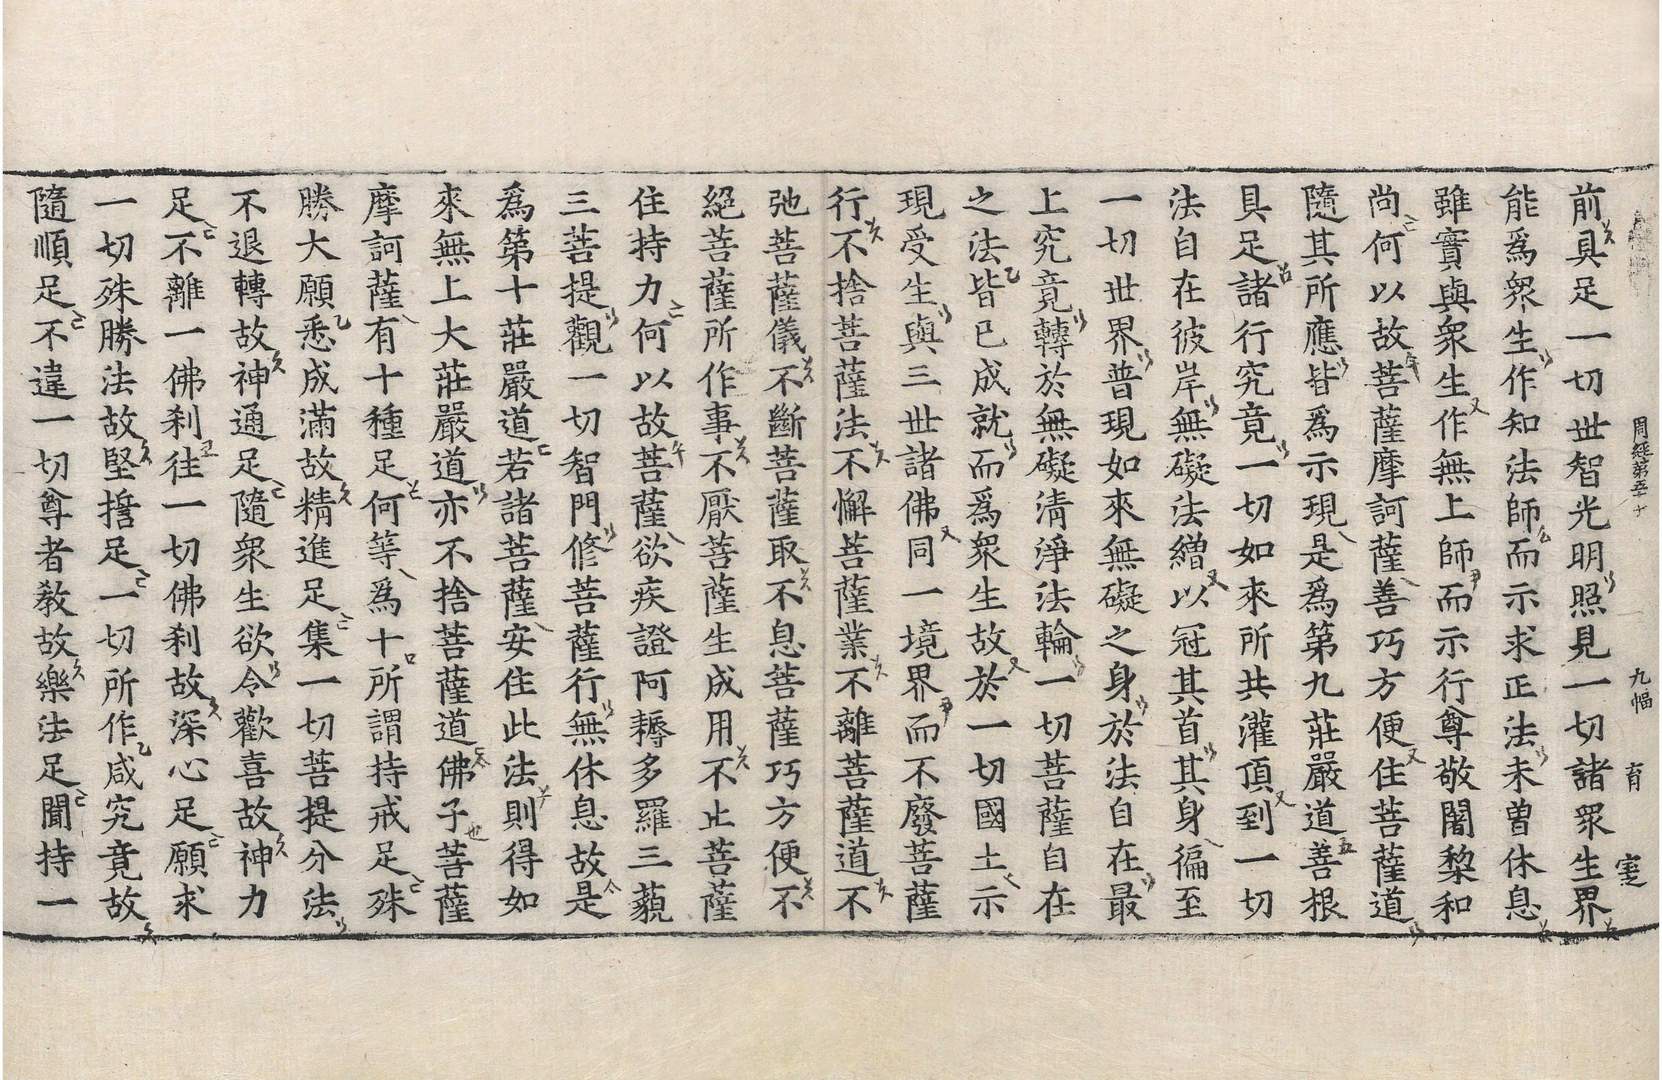 周經第五十 九幅 育 寔
前具足一切世智光明照見一切諸衆生界
能爲衆生作知法師而示求正法未曾休息
雖實與衆生作無上師而示行尊敬闍棃和
尚何以故菩薩摩訶薩善巧方便住菩薩道
隨其所應皆爲示現是爲第九莊嚴道善根
具足諸行究竟一切如來所共灌頂到一切
法自在彼岸無礙法繒以冠其首其身徧至
一切世界普現如來無礙之身於法自在最
上究竟轉於無礙清淨法輪一切菩薩自在
之法皆已成就而爲衆生故於一切國土示
現受生與三世諸佛同一境界而不廢菩薩
行不捨菩薩法不懈菩薩業不離菩薩道不
弛菩薩儀不斷菩薩取不息菩薩巧方便不
絕菩薩所作事不厭菩薩生成用不止菩薩
住持力何以故菩薩欲疾證阿耨多羅三藐
三菩提觀一切智門修菩薩行無休息故是
爲第十莊嚴道若諸菩薩安住此法則得如
來無上大莊嚴道亦不捨菩薩道佛子菩薩
摩訶薩有十種足何等爲十所謂持戒足殊
勝大願悉成滿故精進足集一切菩提分法
不退轉故神通足隨衆生欲令歡喜故神力
足不離一佛刹往一切佛刹故深心足願求
一切殊勝法故堅擔足一切所作咸究竟故
隨順足不違一切尊者敎故樂法足聞持一